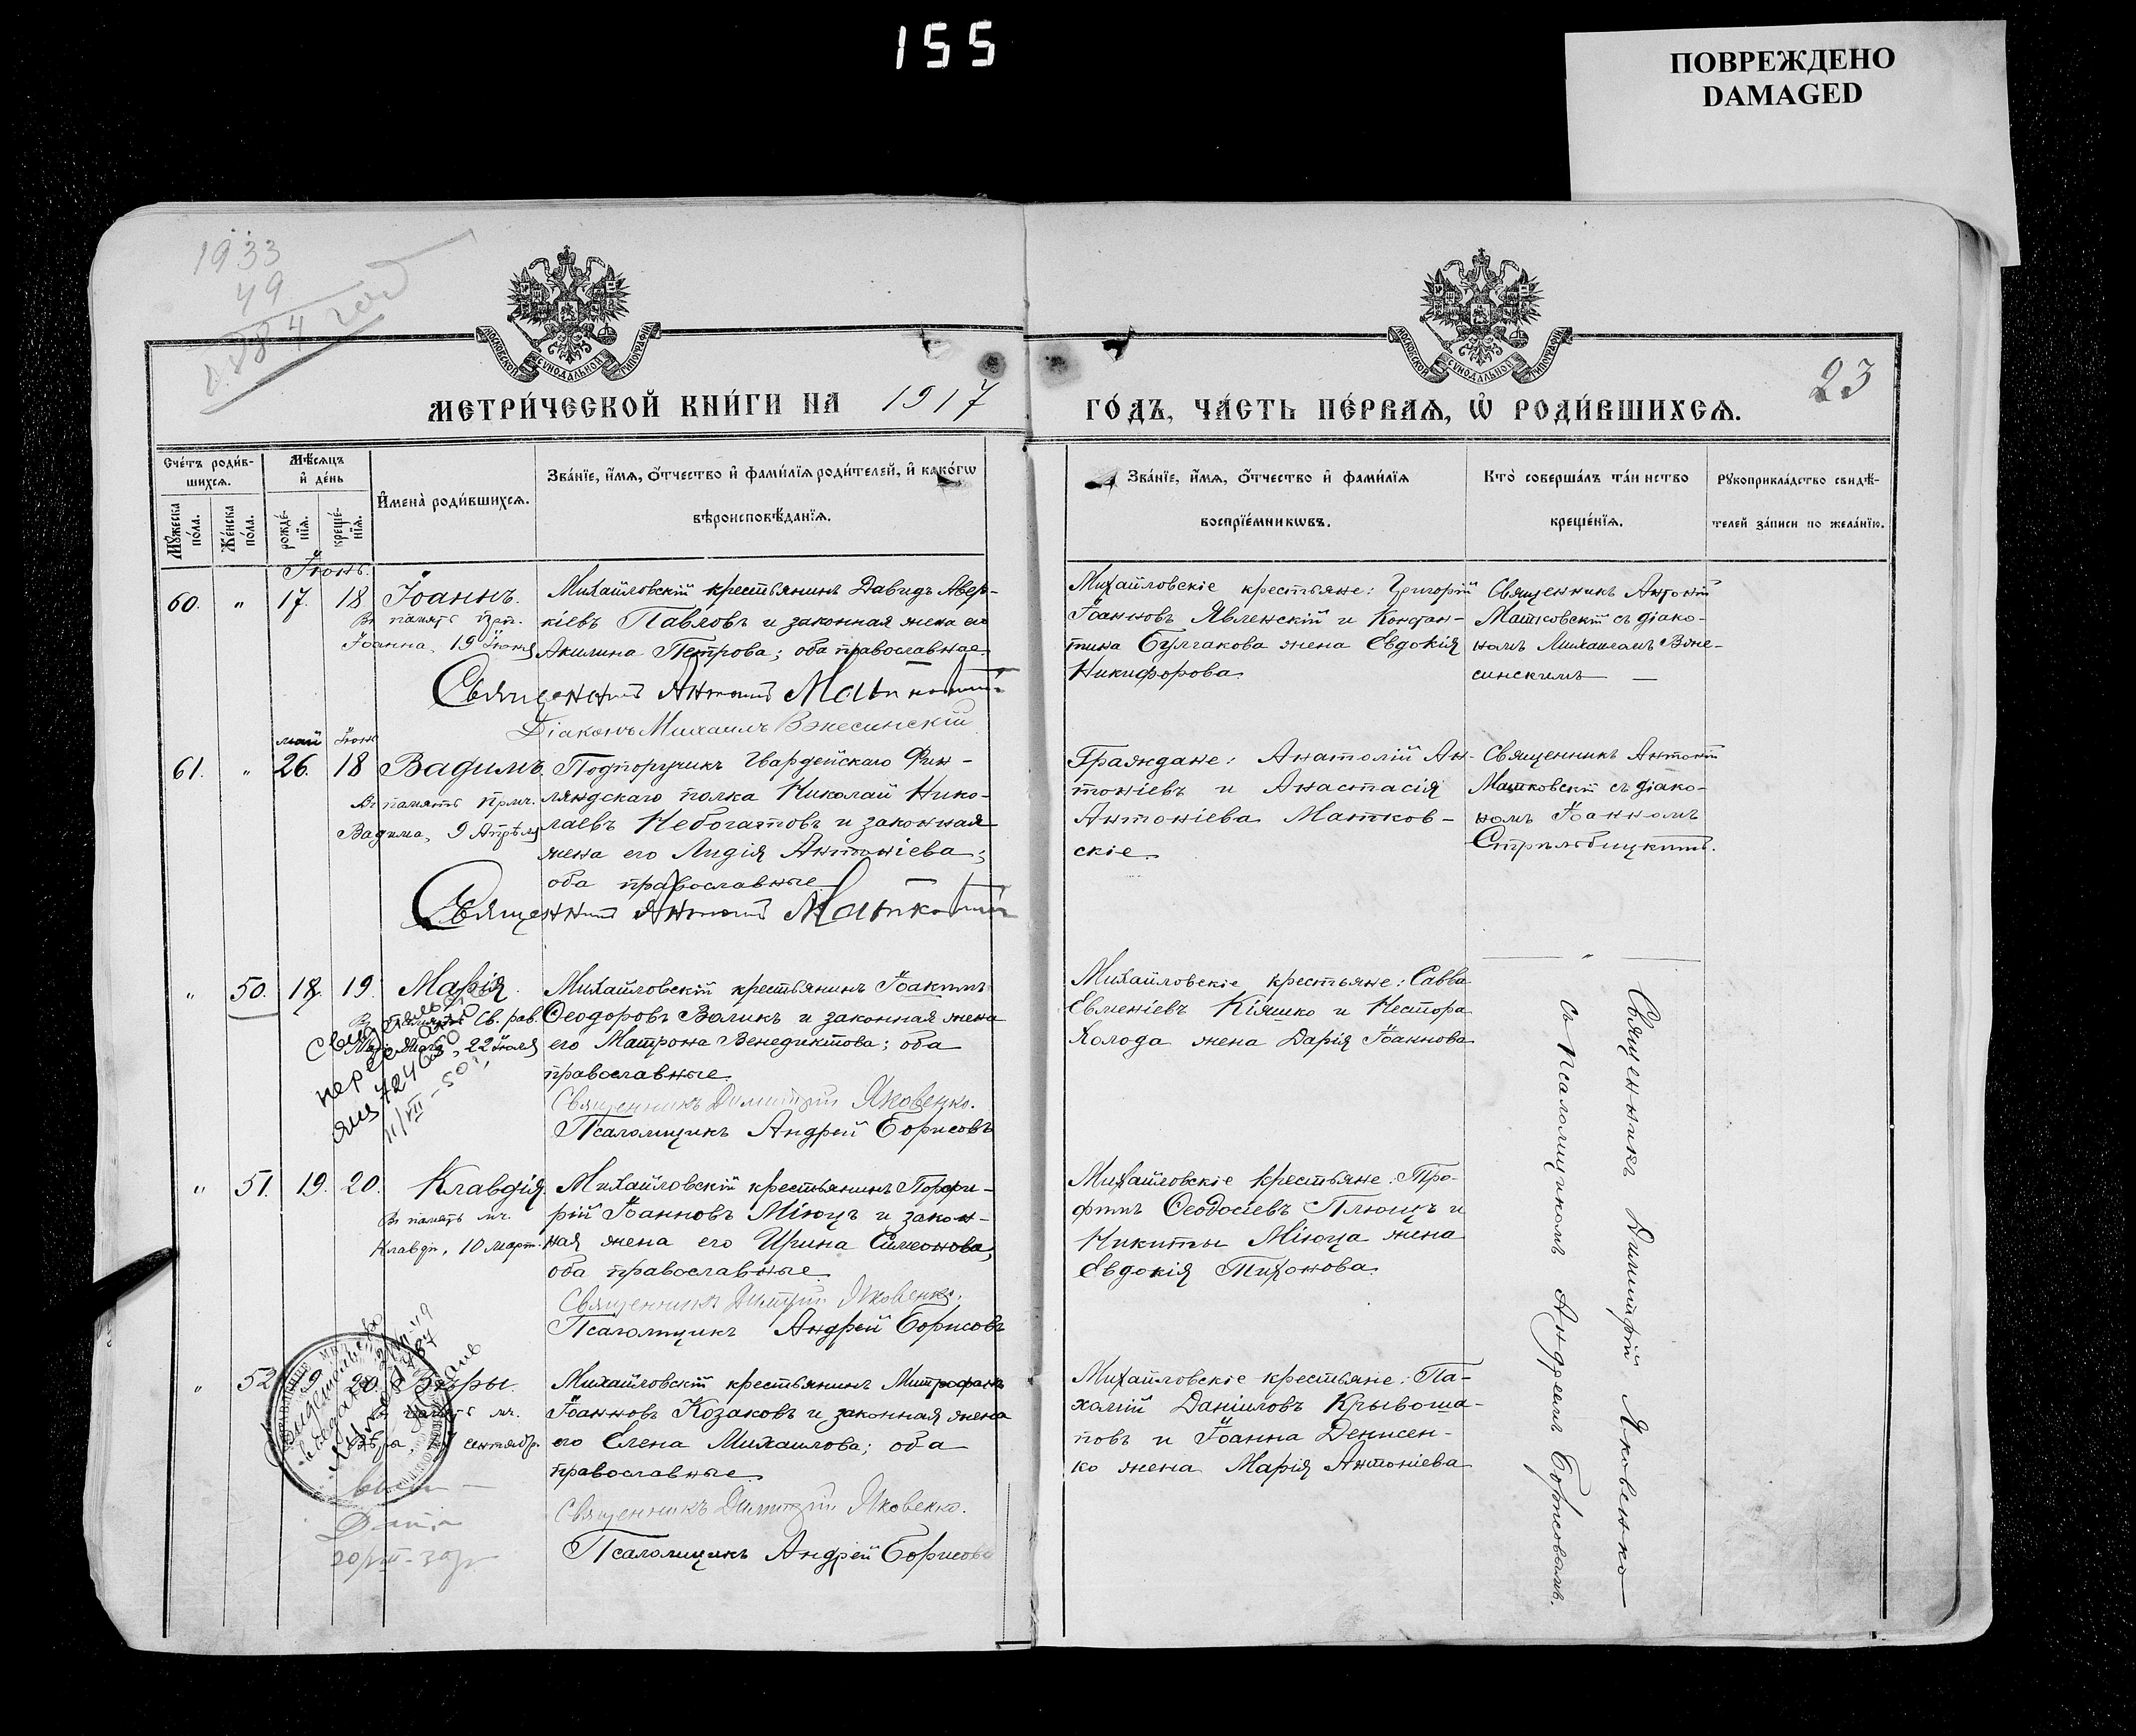 155
ПОВРЕЖДЕНО
DAMAGED
1933
49
23
МОСКОВСКОЙ СѴНОДАЛЬНОЙ ТИПОГРАФІИ
МОСКОВСКОЙ СѴНОДАЛЬНОЙ ТИПОГРАФІИ
МЕТРИ́ЧЕСКОЙ КНИ́ГИ НА 1917
ГО́ДЪ, ЧА́СТЬ ПЕ́РВАѦ, Ѡ҆ РОДИ́ВШИХСѦ.
Сче́тъ роди́в-
шихсѧ.
Мꙋ́жеска по́ла.
Же́нска по́ла.
Мѣ́сѧцъ
и҆ де́нь
рожде́-
нїѧ.
креще́-
нїѧ.
И҆мена̀ роди́вшихсѧ.
Зва́нїе, и҆́мѧ, ѻ҆́тчество и҆ фами́лїѧ роди́телей, и҆ како́гѡ
вѣроисповѣ́данїѧ.
Зва́нїе, и҆́мѧ, ѻ҆́тчество и҆ фами́лїѧ
воспрїе́мникѡвъ.
Кто̀ соверша́лъ та́инство
креще́нїѧ.
Рꙋкоприкла́дство свидѣ́-
телей за́писи по жела́нїю.
Іюнь.
60. " 17. 18 Іоаннъ.
Въ память прп.
Іоанна, 19 Іюня
Михайловскій крестьянинъ Давидъ Авер-
кіевъ Павловъ и законная жена его
Акилина Петрова; оба православные.
Священникъ Антоній Матковскій
Діаконъ Михаилъ Вжесинскій
Михайловскіе крестьяне: Григорій
Іоанновъ Явленскій и Кондан-
тина Булгакова жена Евдокія
Никифорова.
Священникъ Антоній
Матковскій съ діако-
номъ Михаиломъ Вжe-
синскимъ —
май Іюнь
61. " 26. 18 Вадимъ.
Въ память прмч.
Вадима, 9 Апрѣля
Подпоручикъ Гвардейскаго Фин-
ляндскаго полка Николай Нико-
лаевъ Небогатовъ и законная
жена его Лидія Антоніева;
оба православные.
Священникъ Антоній Матковскій
Граждане: Анатолій Ан-
тоніевъ и Анастасія
Антоніева Матков-
скіе.
Священникъ Антоній
Матковскій съ діако-
номъ Іоанномъ
Стрѣльбицкимъ.
" 50. 18. 19. Марія.
Въ память св. рав.
Маріи Магд., 22 Іюля
Михайловскій крестьянинъ Іоакимъ
Ѳеодоровъ Воликъ и законная жена
его Матрона Венедиктова; оба
православные.
Священникъ Димитрій Яковенко.
Псаломщикъ Андрей Борисовъ
Михайловскіе крестьяне: Савва
Евменіевъ Кіяшко и Нестора
Холода жена Дарія Іоаннова
Священникъ Димитрій Яковенко
съ Псаломщикомъ Андреемъ Борисовымъ.
" 51. 19. 20. Клавдія.
Въ память мч.
Клавді, 10 март.
Михайловскій крестьянинъ Порфи-
рій Іоанновъ Міюцъ и закон-
ная жена его Ирина Симеонова;
оба православные.
Священникъ Димитрій Яковенко.
Псаломщикъ Андрей Борисовъ
Михайловскіе крестьяне: Тро-
фимъ Ѳеодосіевъ Плющъ и
Никиты Міюца жена
Евдокія Тихонова.
" 52 20. Вѣры.
Михайловскій крестьянинъ Митрофанъ
Іоанновъ Козаковъ и законная жена
его Елена Михаилова; оба
православные.
Священникъ Димитрій Яковенко.
Псаломщикъ Андрей Борисовъ
Михайловскіе крестьяне: Па-
хомій Даніиловъ Крывоша-
повъ и Іоанна Денисен-
ко жена Марія Антоніева